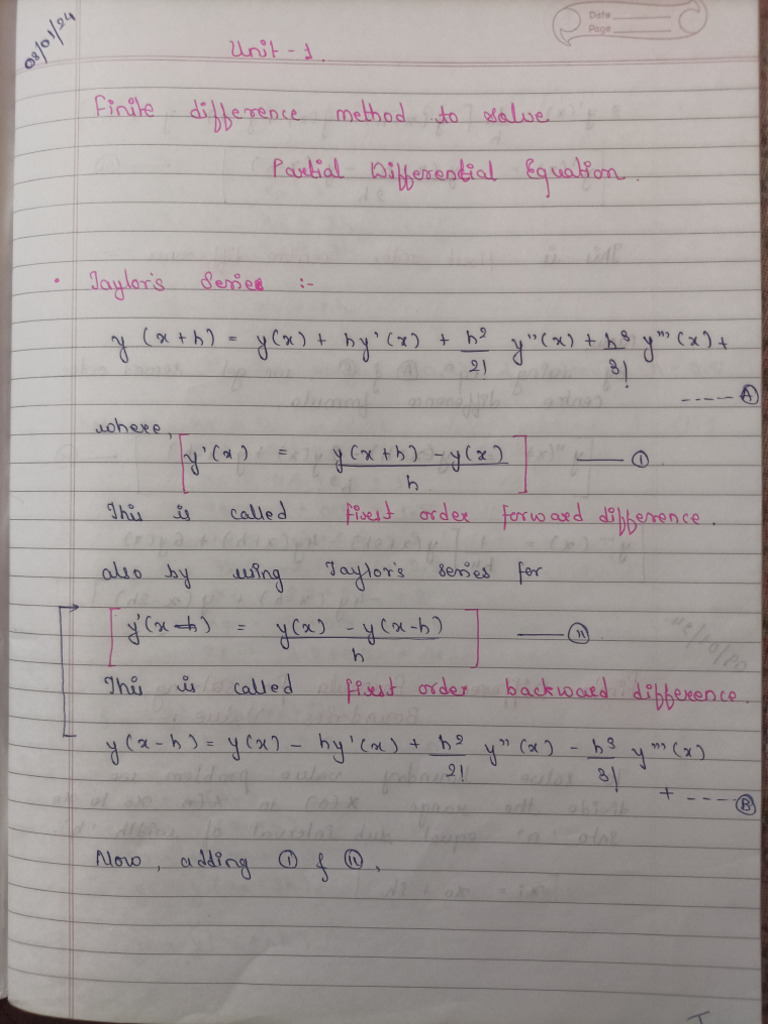 08/01/24
Date
Page
Unit - 1.
Finite difference method to solve
Partial Differential Equation.
• Taylor's Series :-
y (x+h) = y(x) + hy'(x) + h²/2! y''(x) + h³/3! y'''(x) +
----- Ⓐ
where,
[y'(x) = y(x+h) - y(x) / h] —— ①
This is called first order forward difference.
also by using Taylor's series for
[y'(x-h) = y(x) - y(x-h) / h] —— ⑪
This is called first order backward difference.
y(x-h) = y(x) - hy'(x) + h²/2! y''(x) - h³/3! y'''(x)
+ ---- Ⓑ
Now, adding ① & ⑪,